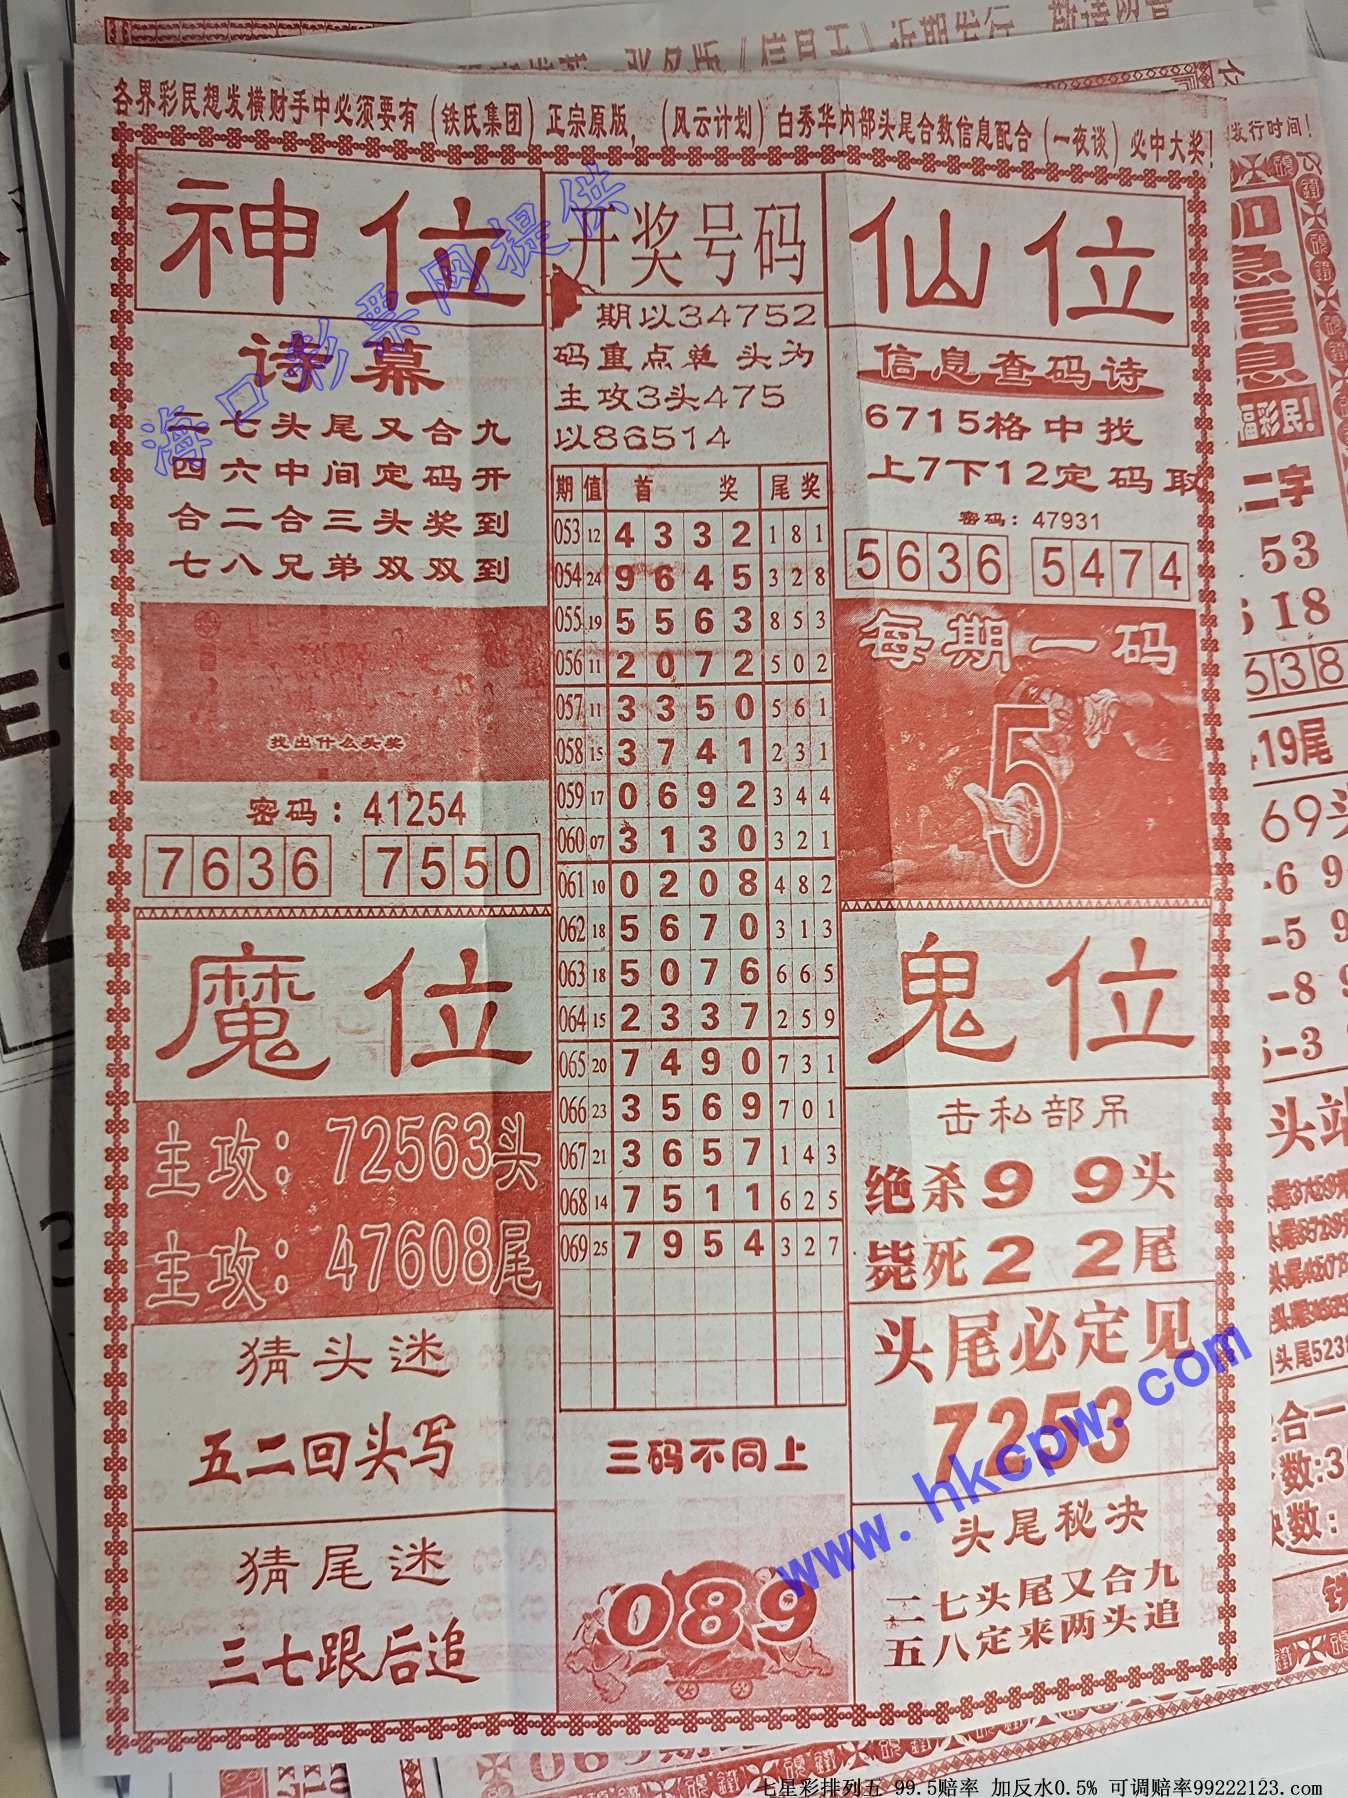 各界彩民想发横财手中必须要有（铁氏集团）正宗原版，（风云计划）白秀华内部头尾合数信息配合（一夜谈）必中大奖！
神位
诗幕
二七头尾又合九
四六中间定码开
合二合三头奖到
七八兄弟双双到
找出什么头奖
密码：41254
7636 7550
魔位
主攻：72563头
主攻：47608尾
猜头迷
五二回头写
猜尾迷
三七跟后追
开奖号码
期以34752
码重点单 头为
主攻3头475
以86514
期 值 首 奖 尾奖
053 12 4 3 3 2 1 8 1
054 24 9 6 4 5 3 2 8
055 19 5 5 6 3 8 5 3
056 11 2 0 7 2 5 0 2
057 11 3 3 5 0 5 6 1
058 15 3 7 4 1 2 3 1
059 17 0 6 9 2 3 4 4
060 07 3 1 3 0 3 2 1
061 10 0 2 0 8 4 8 2
062 18 5 6 7 0 3 1 3
063 18 5 0 7 6 6 6 5
064 15 2 3 3 7 2 5 9
065 20 7 4 9 0 7 3 1
066 23 3 5 6 9 7 0 1
067 21 3 6 5 7 1 4 3
068 14 7 5 1 1 6 2 5
069 25 7 9 5 4 3 2 7
三码不同上
089
仙位
信息查码诗
6715格中找
上7下12定码取
密码：47931
5636 5474
每期一码
5
鬼位
击私部吊
绝杀9 9头
毙死2 2尾
头尾必定见
7253
头尾秘决
二七头尾又合九
五八定来两头追
发行时间！
加急信息
福彩民!
二字
53
618
638
419尾
69头
海口彩票网提供
www.hkcpw.com
七星彩排列五 99.5赔率 加反水0.5% 可调赔率99222123.com